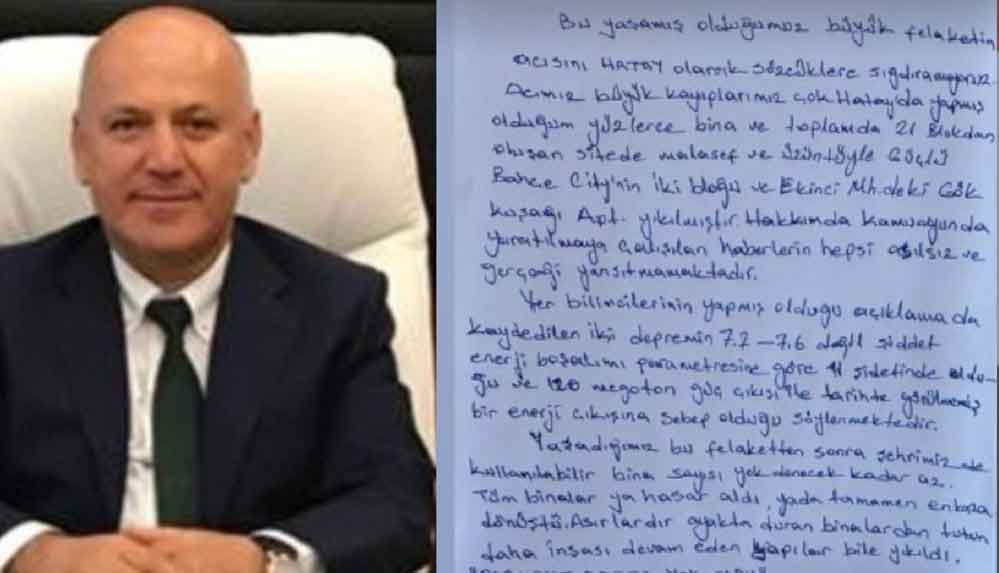 Bu yaşamış olduğumuz büyük felaketin
acısını HATAY olarak sözcüklere sığdıramıyoruz.
Acımız büyük kayıplarımız çok Hatay'da yapmış
olduğum yüzlerce bina ve toplamda 21 Blokdan
oluşan sitede malasef ve üzüntüyle Güçlü
Bahçe City'nin iki bloğu ve Ekinci Mh.deki Gök
kuşağı Apt. yıkılmıştır. Hakkımda kamuoyunda
yaratılmaya çalışılan haberlerin hepsi asılsız ve
gerçeği yansıtmamaktadır.
Yer bilimcilerinin yapmış olduğu açıklamada
kaydedilen iki depremin 7.7 – 7.6 değil şiddet
enerji boşalımı parametresine göre 11 şidetinde oldu-
ğu ve 120 megaton güç çıkışı ile tarihte görülmemiş
bir enerji çıkışına sebep olduğu söylenmektedir.
Yaşadığımız bu felaketten sonra şehrimizde
kullanılabilir bina sayısı yok denecek kadar az.
Tüm binalar ya hasar aldı, yada tamamen enkaza
dönüştü. Asırlardır ayakta duran binalardan tutun
daha inşası devam eden yapılar bile yıkıldı.